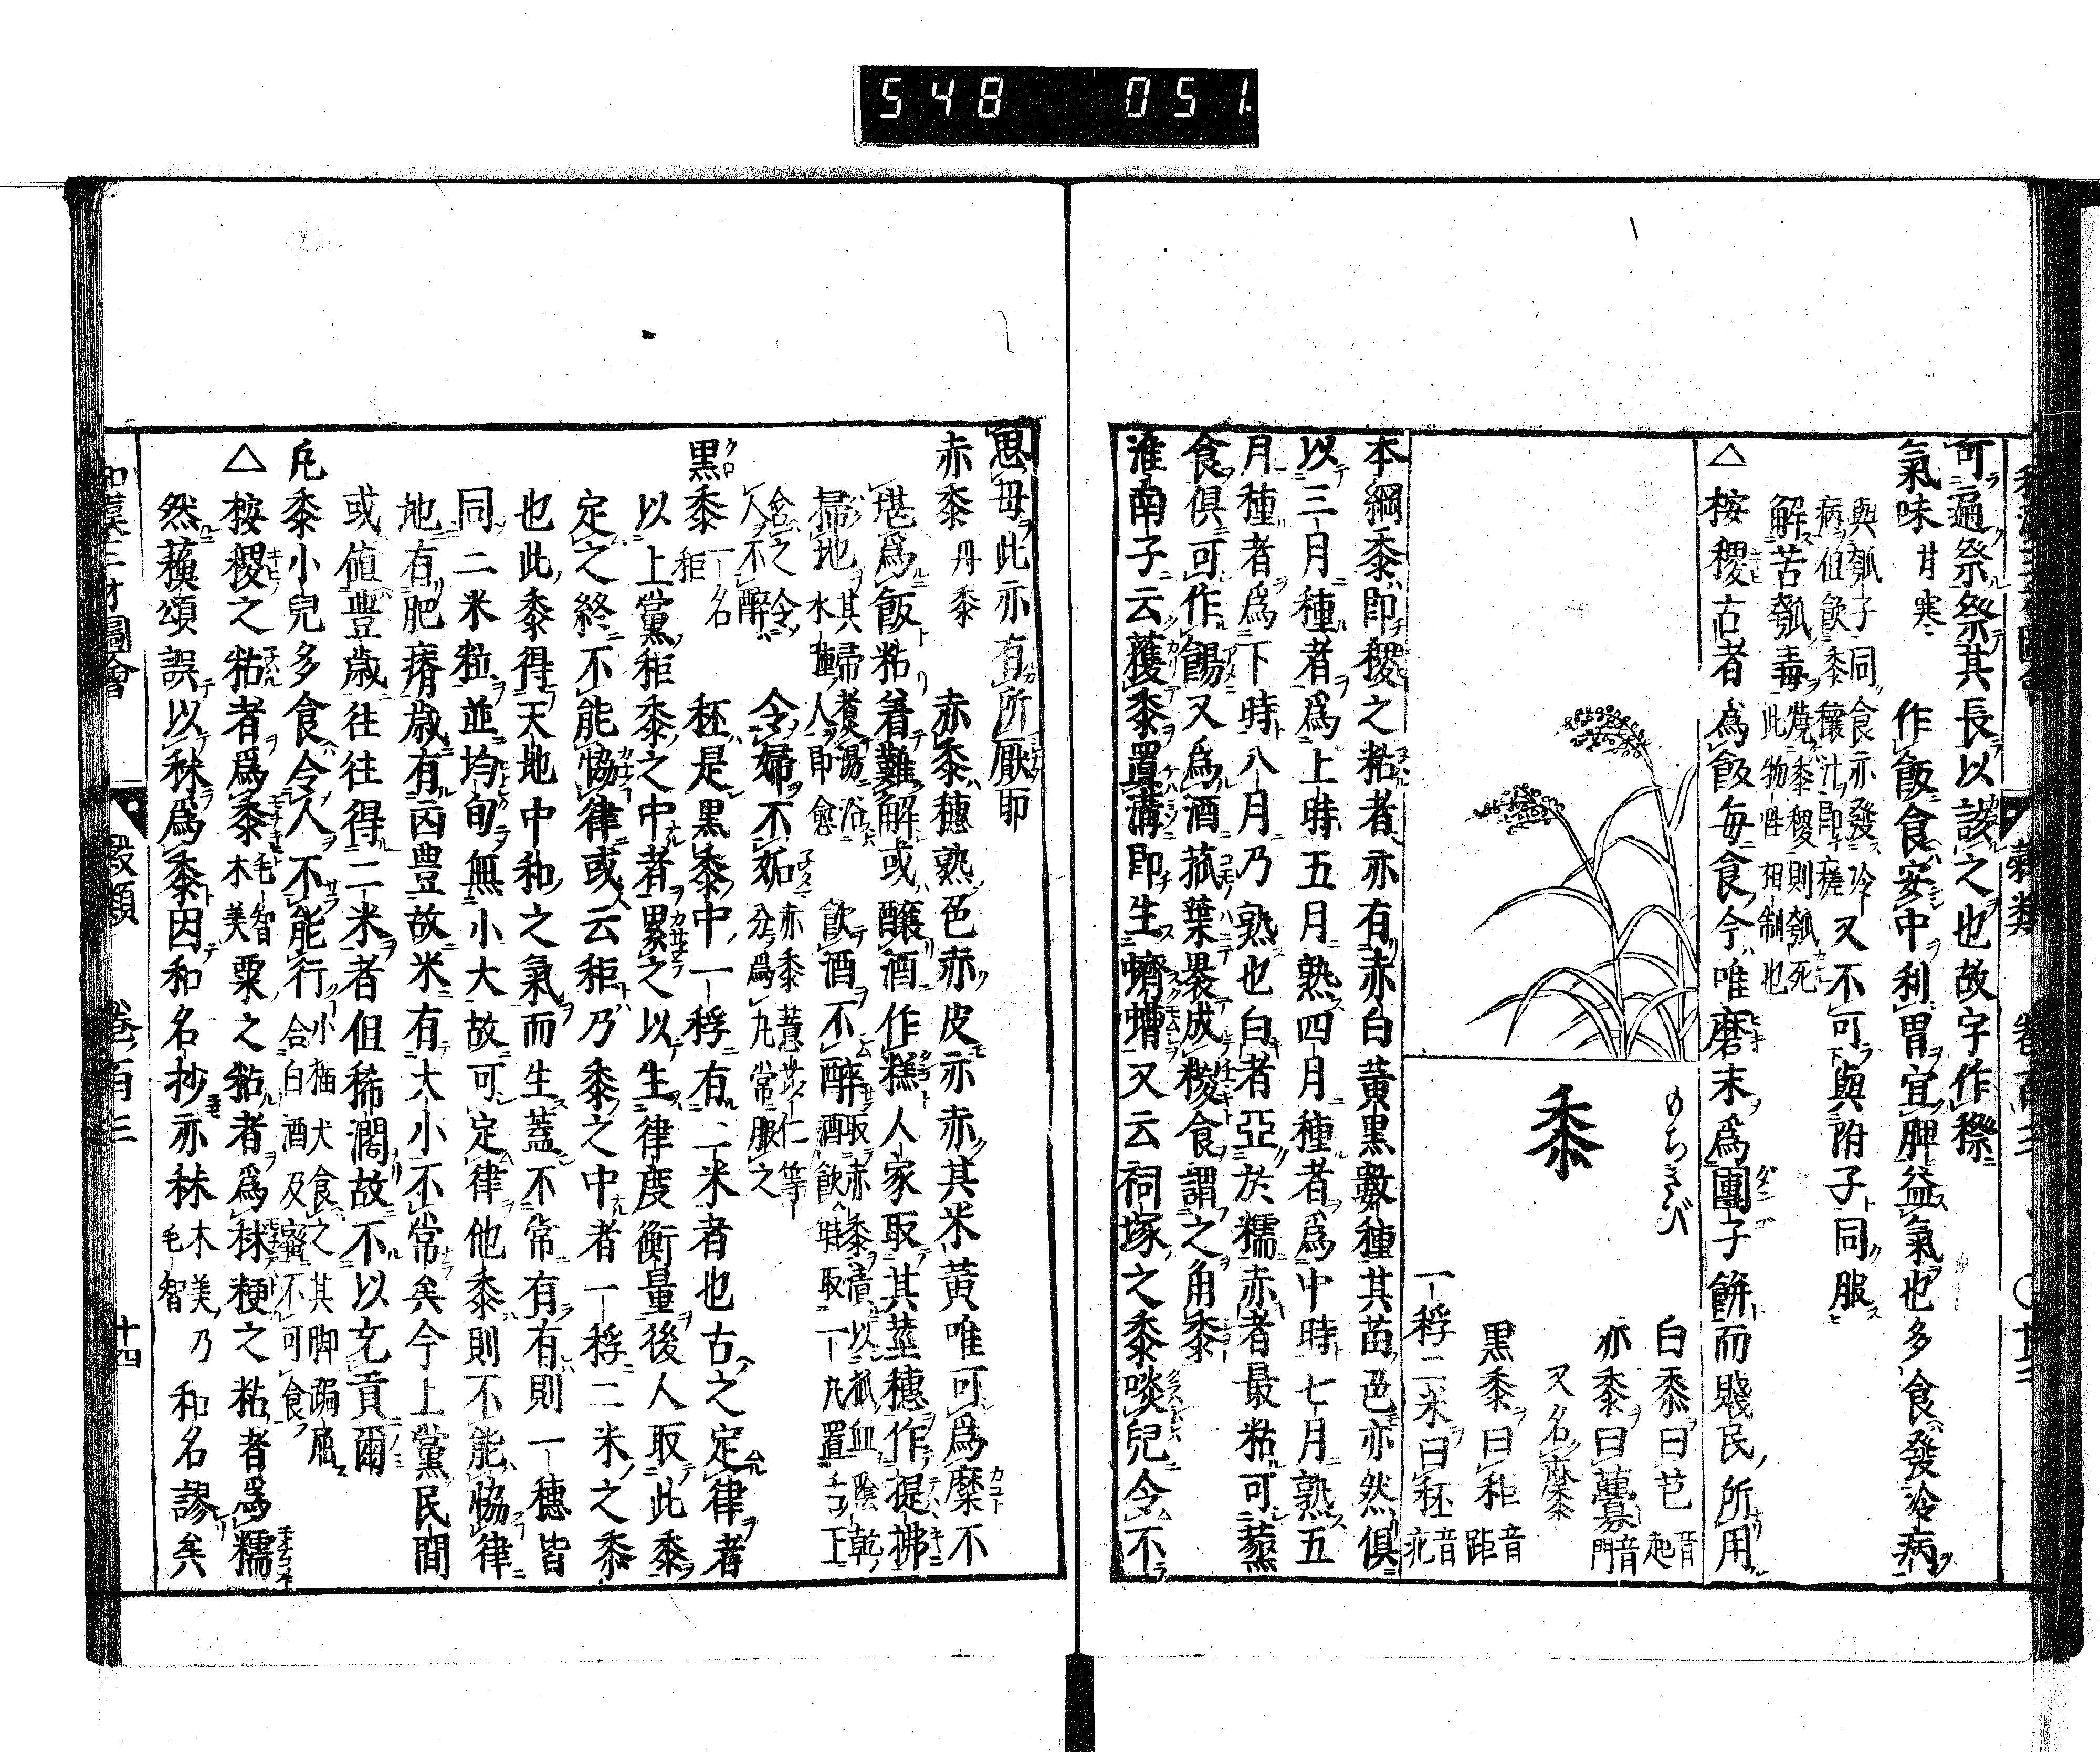 548 051
可遍祭祭其長以該之也故字作𥢒
氣味 甘寒 作飯食安中利胃宜脾益氣也多食發冷病
與瓠子同食亦發冷
病但飲黍穰汁即瘥 又不可與附子同服
解苦瓠毒 燒黍稷則瓠死
此物性相制也
△ 按稷古者爲飯毎食今唯磨末爲團子餅而賤民所用
黍
もちきび
白黍曰芑 音起
赤黍曰虋 音門
又名糜黍
黑黍曰秬 音距
一稃二米曰秠 音疕
本綱黍即稷之粘者亦有赤白黃黑數種其苗色亦然俱
以三月種者爲上時五月熟四月種者爲中時七月熟五
月種者爲下時八月乃熟也白者亞於糯赤者最粘可蒸
食俱可作餳又爲酒菰葉裹成糉食謂之角黍
淮南子云穫黍置溝即生蠐螬又云祠塚之黍啖兒令不
思母此亦有所厭耶
赤黍 丹黍 赤黍穗熟色赤皮亦赤其米黃唯可爲糜不
堪爲飯粘着難解或醸酒作糕人家取其莖穗作提拂
掃地 其掃煑湯浴
水腫人即愈 飲酒不醉 取赤黍漬以狐血陰乾
酒飲時取一丸置舌上
含之令
人不醉 令婦不妬 赤黍薏苡仁等
分爲丸常服之
黑黍 一名
秬 秠是黑黍中一稃有二米者也古之定律者
以上黨秬黍之中者累之以生律度衡量後人取此黍
定之終不能恊律或云秬乃黍之中者一稃二米之黍
也此黍得天地中和之氣而生蓋不常有有則一穗皆
同二米粒並均旬無小大故可定律他黍則不能恊律
地有肥瘠歳有凶豊故米有大小不常矣今上黨民間
或値豊歳往往得二米者但稀濶故不以充貢爾
凡黍小兒多食令人不能行 小猫犬食之其脚跼屈
合白酒及蜜不可食
△ 按稷之粘者爲黍 毛智
木美 粟之粘者爲秫粳之粘者爲糯
然蘓頌誤以秫爲黍因和名抄亦秫 木美乃
毛智 和名謬矣
和漢三才圖會 穀類 卷百三 十四